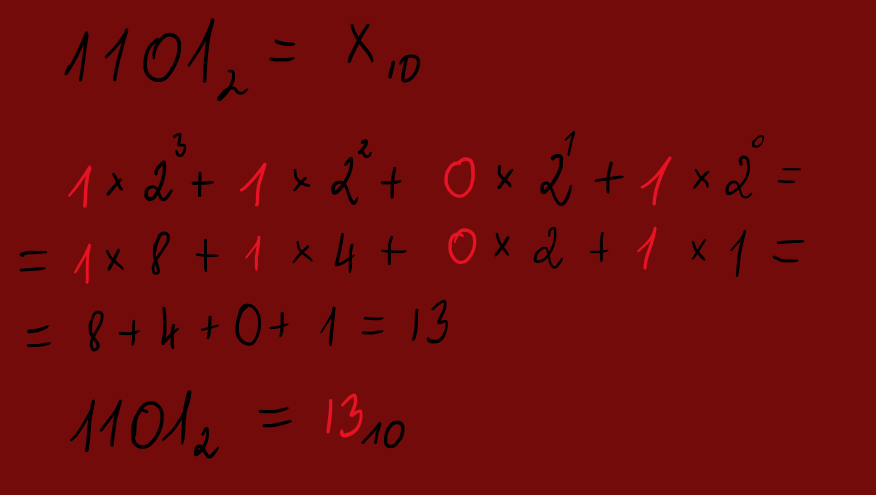 1101₂ = x₁₀
1 × 2³ + 1 × 2² + 0 × 2¹ + 1 × 2⁰ =
= 1 × 8 + 1 × 4 + 0 × 2 + 1 × 1 =
= 8 + 4 + 0 + 1 = 13
1101₂ = 13₁₀